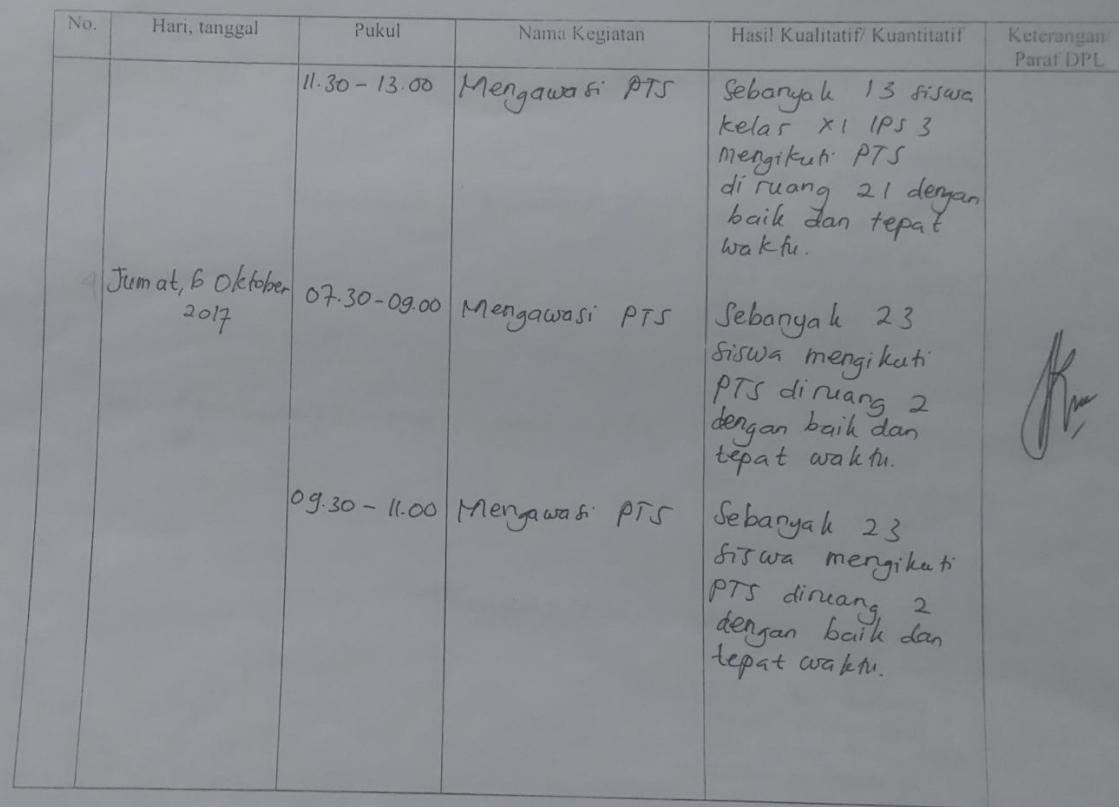 No. Hari, tanggal Pukul Nama Kegiatan Hasil Kualitatif/ Kuantitatif Keterangan/
Paraf DPL
11.30 - 13.00 Mengawasi PTS Sebanyak 13 siswa
kelas XI IPS 3
mengikuti PTS
di ruang 21 dengan
baik dan tepat
waktu.
Jumat, 6 Oktober 07.30 - 09.00 Mengawasi PTS Sebanyak 23
2017
siswa mengikuti
PTS diruang 2
dengan baik dan
tepat waktu.
09.30 - 11.00 Mengawasi PTS Sebanyak 23
siswa mengikuti
PTS diruang 2
dengan baik dan
tepat waktu.